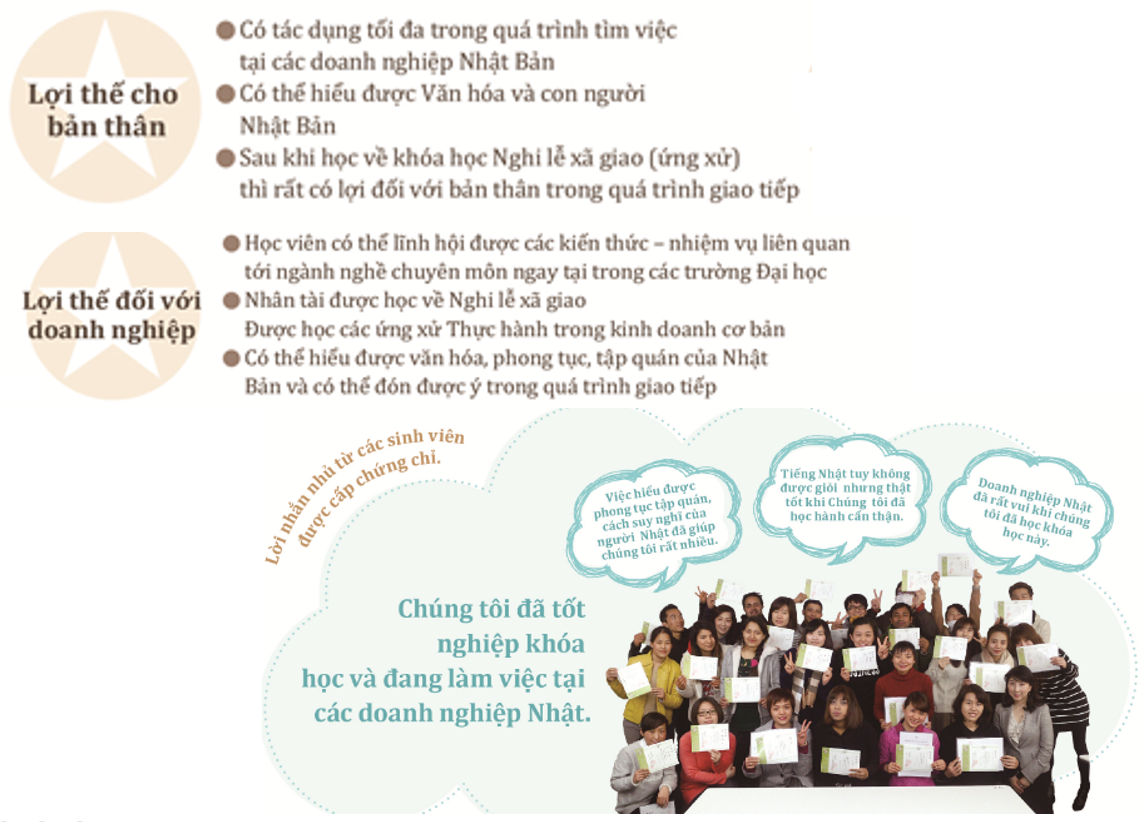 Lợi thế cho
bản thân
● Có tác dụng tối đa trong quá trình tìm việc
tại các doanh nghiệp Nhật Bản
● Có thể hiểu được Văn hóa và con người
Nhật Bản
● Sau khi học về khóa học Nghi lễ xã giao (ứng xử)
thì rất có lợi đối với bản thân trong quá trình giao tiếp
Lợi thế đối với
doanh nghiệp
● Học viên có thể lĩnh hội được các kiến thức – nhiệm vụ liên quan
tới ngành nghề chuyên môn ngay tại trong các trường Đại học
● Nhân tài được học về Nghi lễ xã giao
Được học các ứng xử Thực hành trong kinh doanh cơ bản
● Có thể hiểu được văn hóa, phong tục, tập quán của Nhật
Bản và có thể đón được ý trong quá trình giao tiếp
Lời nhắn nhủ từ các sinh viên
được cấp chứng chỉ.
Việc hiểu được
phong tục tập quán,
cách suy nghĩ của
người Nhật đã giúp
chúng tôi rất nhiều.
Tiếng Nhật tuy không
được giỏi nhưng thật
tốt khi Chúng tôi đã
học hành cẩn thận.
Doanh nghiệp Nhật
đã rất vui khi chúng
tôi đã học khóa
học này.
Chúng tôi đã tốt
nghiệp khóa
học và đang làm việc tại
các doanh nghiệp Nhật.